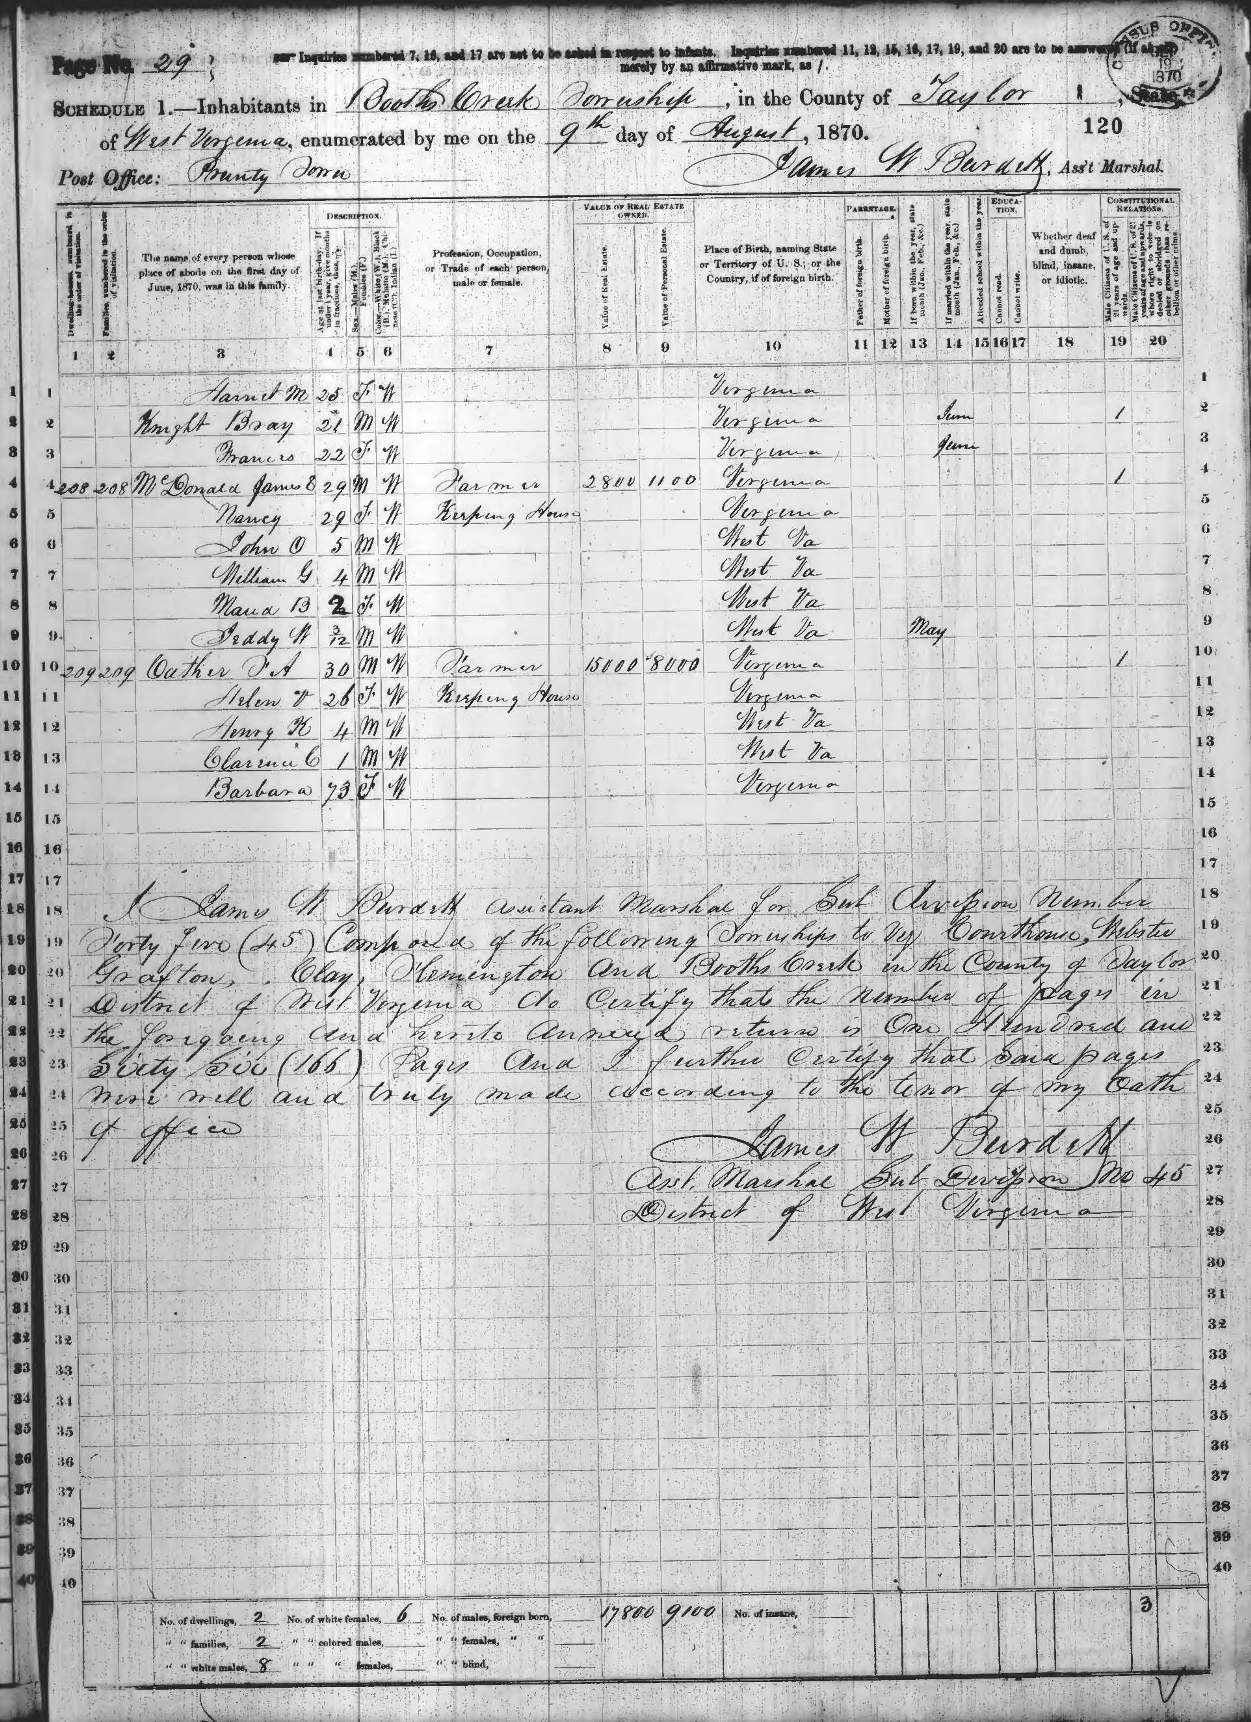 Page No. 29
Inquiries numbered 7, 16, and 17 are not to be asked in respect to infants. Inquiries numbered 11, 12, 15, 16, 17, 19, and 20 are to be answered (if at all)
merely by an affirmative mark, as /.
CENSUS OFFICE 1870
SCHEDULE 1.—Inhabitants in Booths Creek Township, in the County of Taylor, State
of West Virginia, enumerated by me on the 9th day of August, 1870.
120
Post Office: Prunty Town
James W Burdett, Ass't Marshal.
Dwelling-houses, numbered in the order of visitation.
Families, numbered in the order of visitation.
The name of every person whose place of abode on the first day of June, 1870, was in this family.
DESCRIPTION.
Age at last birth-day. If under 1 year, give months in fractions, thus, 3/12
Sex.—Males (M.), Females (F.)
Color.—White (W.), Black (B.), Mulatto (M.), Chinese (C.), Indian (I.)
Profession, Occupation, or Trade of each person, male or female.
VALUE OF REAL ESTATE OWNED.
Value of Real Estate.
Value of Personal Estate.
Place of Birth, naming State or Territory of U. S.; or the Country, if of foreign birth.
PARENTAGE.
Father of foreign birth.
Mother of foreign birth.
If born within the year, state month (Jan., Feb., &c.)
If married within the year, state month (Jan., Feb., &c.)
EDUCATION.
Attended school within the year.
Cannot read.
Cannot write.
Whether deaf and dumb, blind, insane, or idiotic.
CONSTITUTIONAL RELATIONS.
Male Citizens of U. S. of 21 years of age and upwards.
Male Citizens of U. S. of 21 years of age and upwards, whose right to vote is denied or abridged on other grounds than rebellion or other crime.
1 2 3 4 5 6 7 8 9 10 11 12 13 14 15 16 17 18 19 20
1 1 Harriet M 25 F W Virginia 1
2 2 Knight Bray 21 M W Virginia June 1 2
3 3 Frances 22 F W Virginia June 3
4 4 208 208 McDonald James E 29 M W Farmer 2800 1100 Virginia 1 4
5 5 Nancy 29 F W Keeping House Virginia 5
6 6 John O 5 M W West Va 6
7 7 William G 4 M W West Va 7
8 8 Maud B 2 F W West Va 8
9 9 Teddy W 3/12 M W West Va May 9
10 10 209 209 Oather F A 30 M W Farmer 15000 8000 Virginia 1 10
11 11 Helen V 26 F W Keeping House Virginia 11
12 12 Henry K 4 M W West Va 12
13 13 Clarence C 1 M W West Va 13
14 14 Barbara 73 F W Virginia 14
15 15 15
16 16 16
17 17 17
18 18 I James W Burdett assistant Marshal for Sub Division Number 18
19 19 Forty five (45) Composed of the following Townships to viz Courthouse, Webster 19
20 20 Grafton, Clay, Flemington and Booths Creek in the County of Taylor 20
21 21 District of West Virginia do Certify that the number of pages in 21
22 22 the foregoing and hereto annexed return is One Hundred and 22
23 23 Sixty Six (166) Pages and I further Certify that said pages 23
24 24 were well and truly made according to the tenor of my oath 24
25 25 of office 25
26 26 James W Burdett 26
27 27 Asst. Marshal Sub Division No 45 27
28 28 District of West Virginia 28
29 29 29
30 30 30
31 31 31
32 32 32
33 33 33
34 34 34
35 35 35
36 36 36
37 37 37
38 38 38
39 39 39
40 40 40
No. of dwellings, 2 No. of white females, 6 No. of males, foreign born, 17800 9100 No. of insane, 3
" " families, 2 " " colored males, " " females, " "
" " white males, 8 " " " females, " " blind,